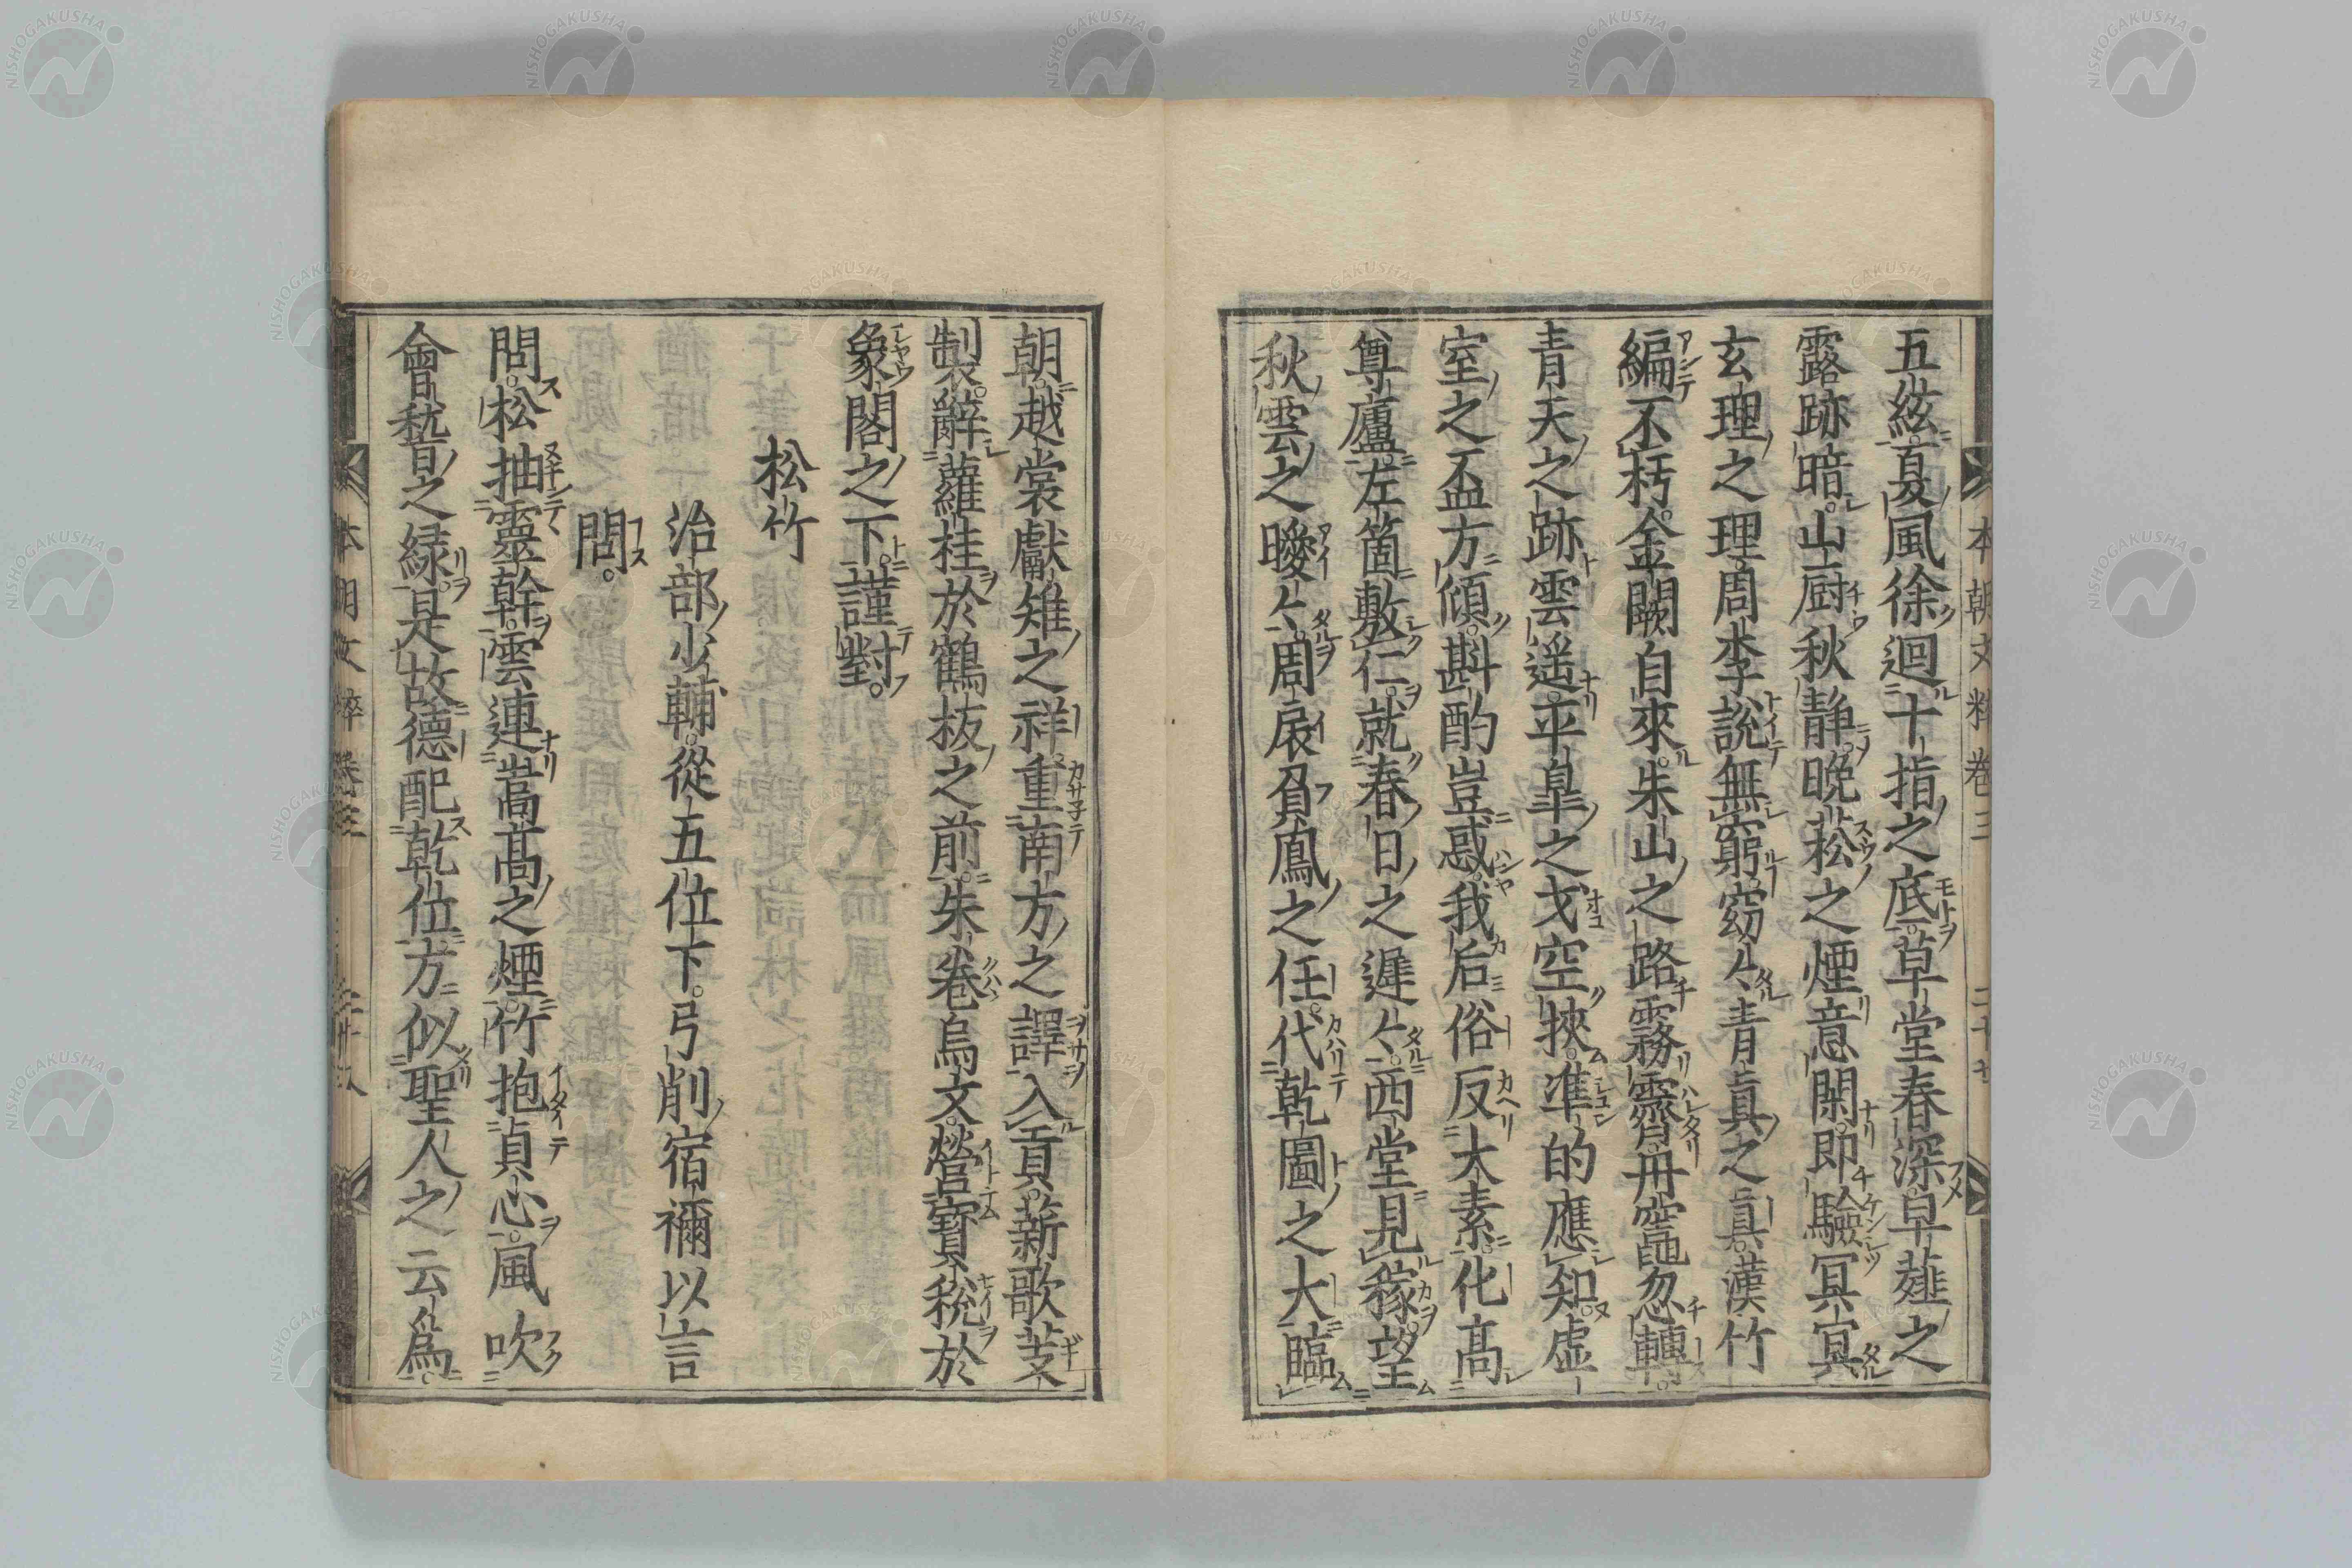 五絃夏風徐迴十指之底草堂春深早薤之
露跡暗山厨秋静晩菘之煙意閑即驗冥冥
玄理之理周李説無窮窈々青真之真漢竹
編不朽金闕自來朱山之路霧霽丹竈忽轉
青天之跡雲遥平皐之戈空挾準的應知虚
室之盃方傾斟酌豈惑我后俗反大素化高
尊廬左箇敷仁就春日之遲々西堂見稼望
秋雲之曖々周扆負鳳之任代乾圖之大臨
朝越裳獻雉之祥重南方之譯入貢薪歌芟
製辭蘿桂於鶴板之前朱卷烏文營寶税於
象閣之下謹對
松竹
治部少輔從五位下弓削宿禰以言
問
問松抽靈幹雲連嵩高之煙竹抱貞心風吹
會嵇之緑是故德配乾位方似聖人之云爲
本朝文粹卷三